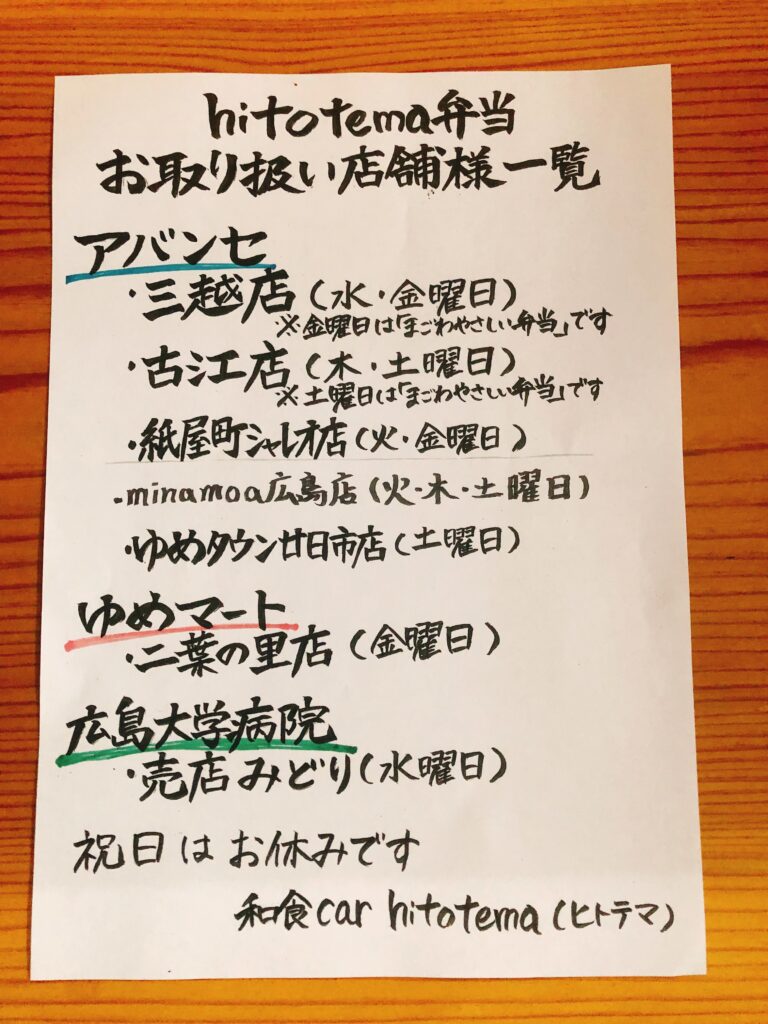 hitotema弁当
お取り扱い店舗様一覧
アバンセ
・三越店(水・金曜日)
※金曜日は「まごわやさしい弁当」です
・古江店(木・土曜日)
※土曜日は「まごわやさしい弁当」です
・紙屋町シャレオ店(火・金曜日)
・minamoa広島店(火・木・土曜日)
・ゆめタウン廿日市店(土曜日)
ゆめマート
・二葉の里店(金曜日)
広島大学病院
・売店みどり(水曜日)
祝日はお休みです
和食car hitotema(ヒトテマ)